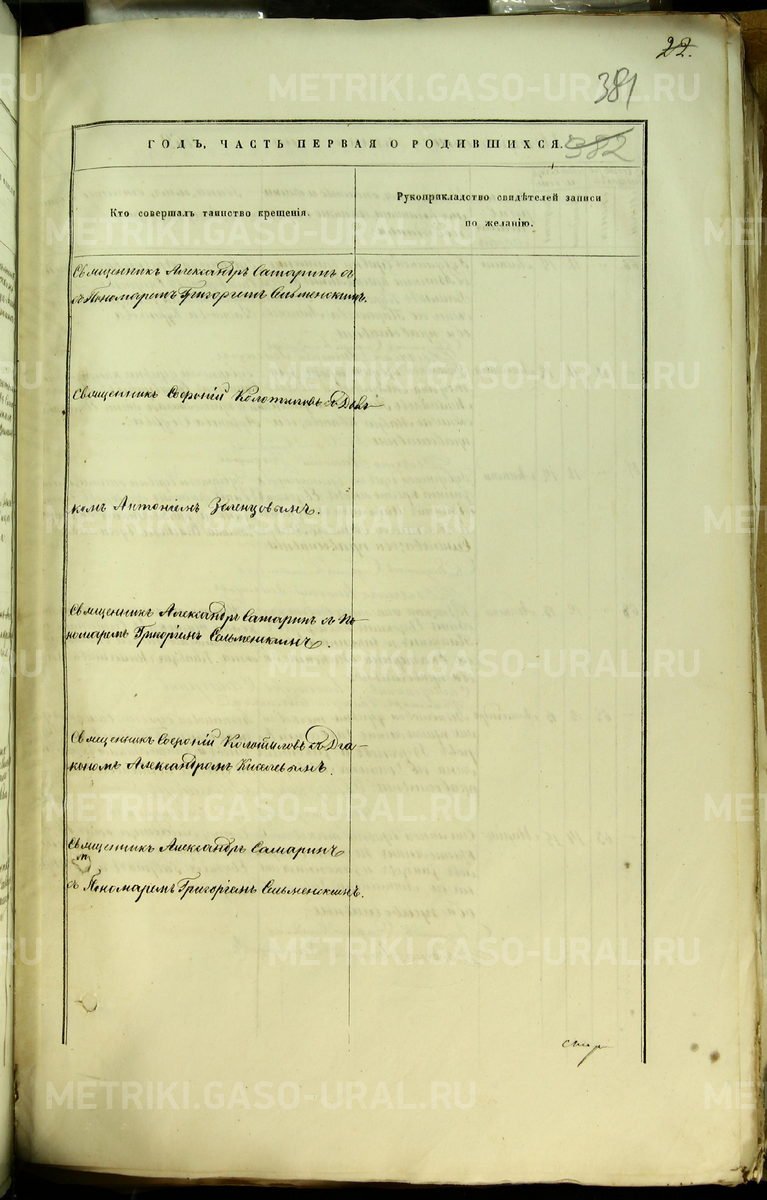 22.
381
ГОДЪ, ЧАСТЬ ПЕРВАЯ О РОДИВШИХСЯ.
382
Кто совершалъ таинство крещенія.
Рукоприкладство свидѣтелей записи
по желанію.
Священникъ Александръ Сатаринъ съ
съ Пономаремъ Григоріемъ Сельменскимъ.
Священникъ Софроній Колотиловъ съ Дья-
комъ Антоніемъ Зеленцовымъ.
Священникъ Александръ Сатаринъ съ По-
номаремъ Григоріемъ Сельменскимъ.
Священникъ Софроній Колотиловъ съ Діа-
кономъ Александромъ
Священникъ Александръ Сатаринъ
съ Пономаремъ Григоріемъ Сельменскимъ.
METRIKI.GASO-URAL.RU